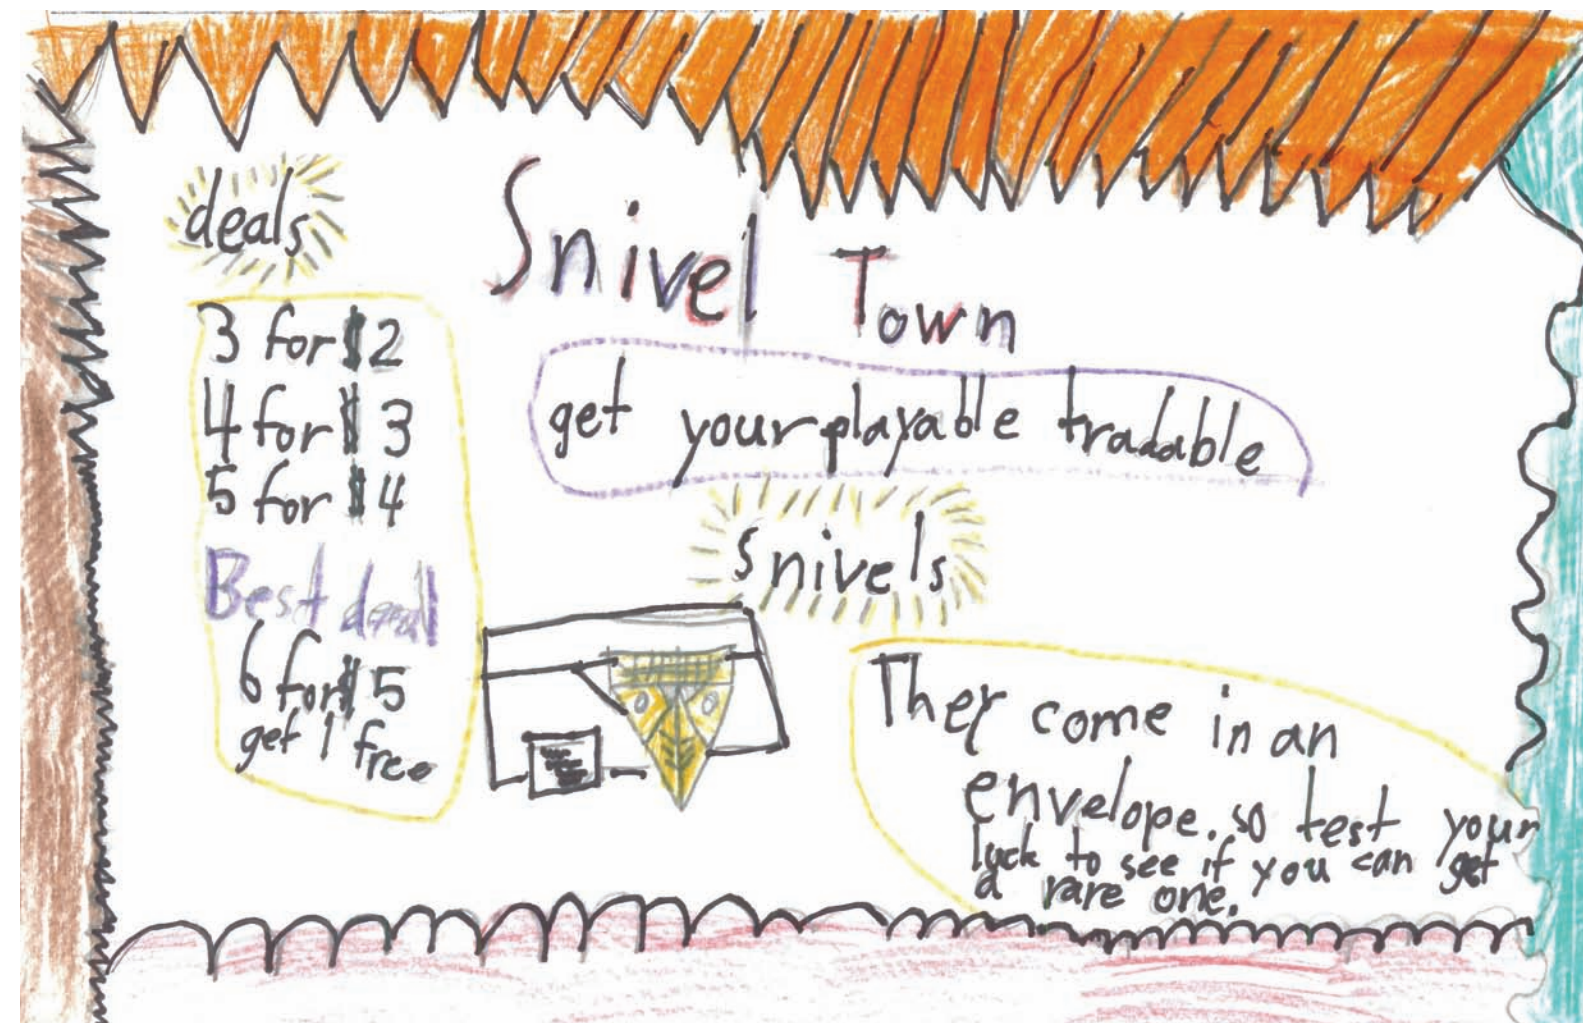 deals
3 for $2
4 for $3
5 for $4
Best deal
6 for $5
get 1 free
Snivel Town
get your playable tradable
snivels
They come in an
envelope. so test your
luck to see if you can get
a rare one.